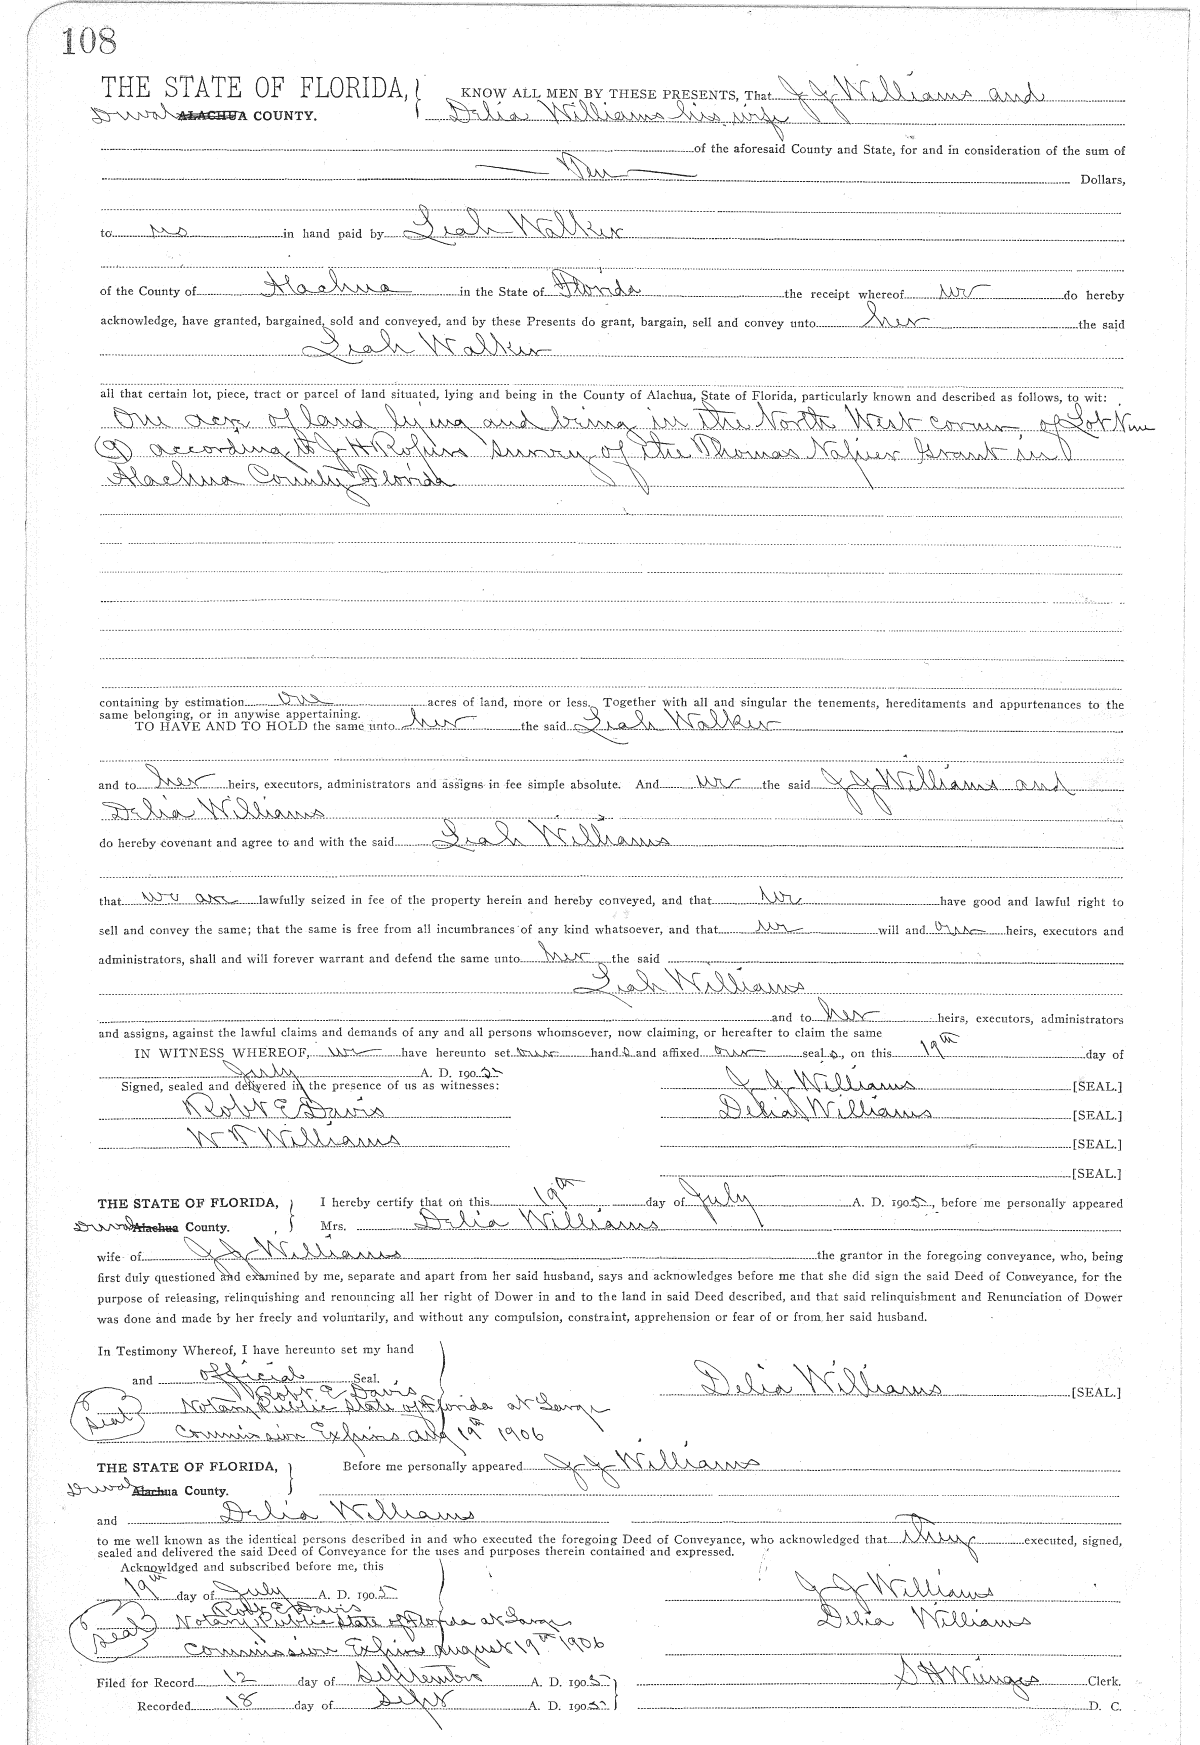 108
THE STATE OF FLORIDA, } KNOW ALL MEN BY THESE PRESENTS, That J J Williams and
Duval ALACHUA COUNTY. Delia Williams his wife
of the aforesaid County and State, for and in consideration of the sum of
Ten Dollars,
to us in hand paid by Leah Walker
of the County of Alachua in the State of Florida the receipt whereof we do hereby
acknowledge, have granted, bargained, sold and conveyed, and by these Presents do grant, bargain, sell and convey unto her the said
Leah Walker
all that certain lot, piece, tract or parcel of land situated, lying and being in the County of Alachua, State of Florida, particularly known and described as follows, to wit:
One acre of land lying and being in the North West corner of Lot Nine
(9) according to J H Ropers survey of the Thomas Napier Grant in
Alachua County Florida
containing by estimation one acres of land, more or less. Together with all and singular the tenements, hereditaments and appurtenances to the
same belonging, or in anywise appertaining.
TO HAVE AND TO HOLD the same unto her the said Leah Walker
and to her heirs, executors, administrators and assigns in fee simple absolute. And we the said J J Williams and
Delia Williams
do hereby covenant and agree to and with the said Leah Williams
that we are lawfully seized in fee of the property herein and hereby conveyed, and that we have good and lawful right to
sell and convey the same; that the same is free from all incumbrances of any kind whatsoever, and that we will and our heirs, executors and
administrators, shall and will forever warrant and defend the same unto her the said
Leah Williams
and to her heirs, executors, administrators
and assigns, against the lawful claims and demands of any and all persons whomsoever, now claiming, or hereafter to claim the same
IN WITNESS WHEREOF, we have hereunto set our hands and affixed our seals, on this 19th day of
July A. D. 1905
Signed, sealed and delivered in the presence of us as witnesses: J J Williams [SEAL.]
Robt E Davis Delia Williams [SEAL.]
W D Williams [SEAL.]
[SEAL.]
THE STATE OF FLORIDA, } I hereby certify that on this 19th day of July A. D. 1905, before me personally appeared
Duval Alachua County. Mrs. Delia Williams
wife of J J Williams the grantor in the foregoing conveyance, who, being
first duly questioned and examined by me, separate and apart from her said husband, says and acknowledges before me that she did sign the said Deed of Conveyance, for the
purpose of releasing, relinquishing and renouncing all her right of Dower in and to the land in said Deed described, and that said relinquishment and Renunciation of Dower
was done and made by her freely and voluntarily, and without any compulsion, constraint, apprehension or fear of or from her said husband.
In Testimony Whereof, I have hereunto set my hand
and official Seal. Delia Williams [SEAL.]
Robt E Davis
Seal Notary Public State of Florida at Large
Commission Expires Aug 19th 1906
THE STATE OF FLORIDA, } Before me personally appeared J J Williams
Duval Alachua County.
and Delia Williams
to me well known as the identical persons described in and who executed the foregoing Deed of Conveyance, who acknowledged that They executed, signed,
sealed and delivered the said Deed of Conveyance for the uses and purposes therein contained and expressed.
Acknowldged and subscribed before me, this
19th day of July A. D. 1905 J J Williams
Robt E Davis
Seal Notary Public State of Florida at Large Delia Williams
Commission Expires August 19th 1906
Filed for Record 12 day of September A. D. 1905 S H Wienges Clerk.
Recorded 18 day of Sept A. D. 1905 D. C.